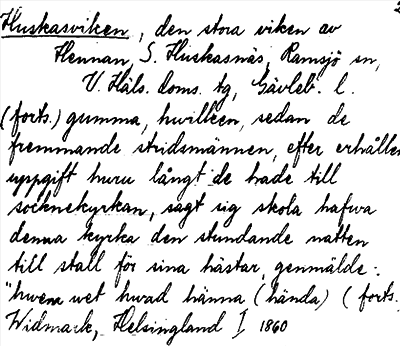 Huskasviken, den stora viken av
Hennan, S. Huskasnäs, Ramsjö sn,
V. Häls. doms. tg, Gävleb. l.
(forts.) gumma, hwilken, sedan de
fremmande stridsmännen, efter erhållen
uppgift huru långt de hade till
socknekyrkan, sagt sig skola hafwa
denna kyrka den stundande natten
till stall för sina hästar, genmälde:
"hwem wet hwad hänna (hända) (forts.
Widmark, Helsingland I 1860